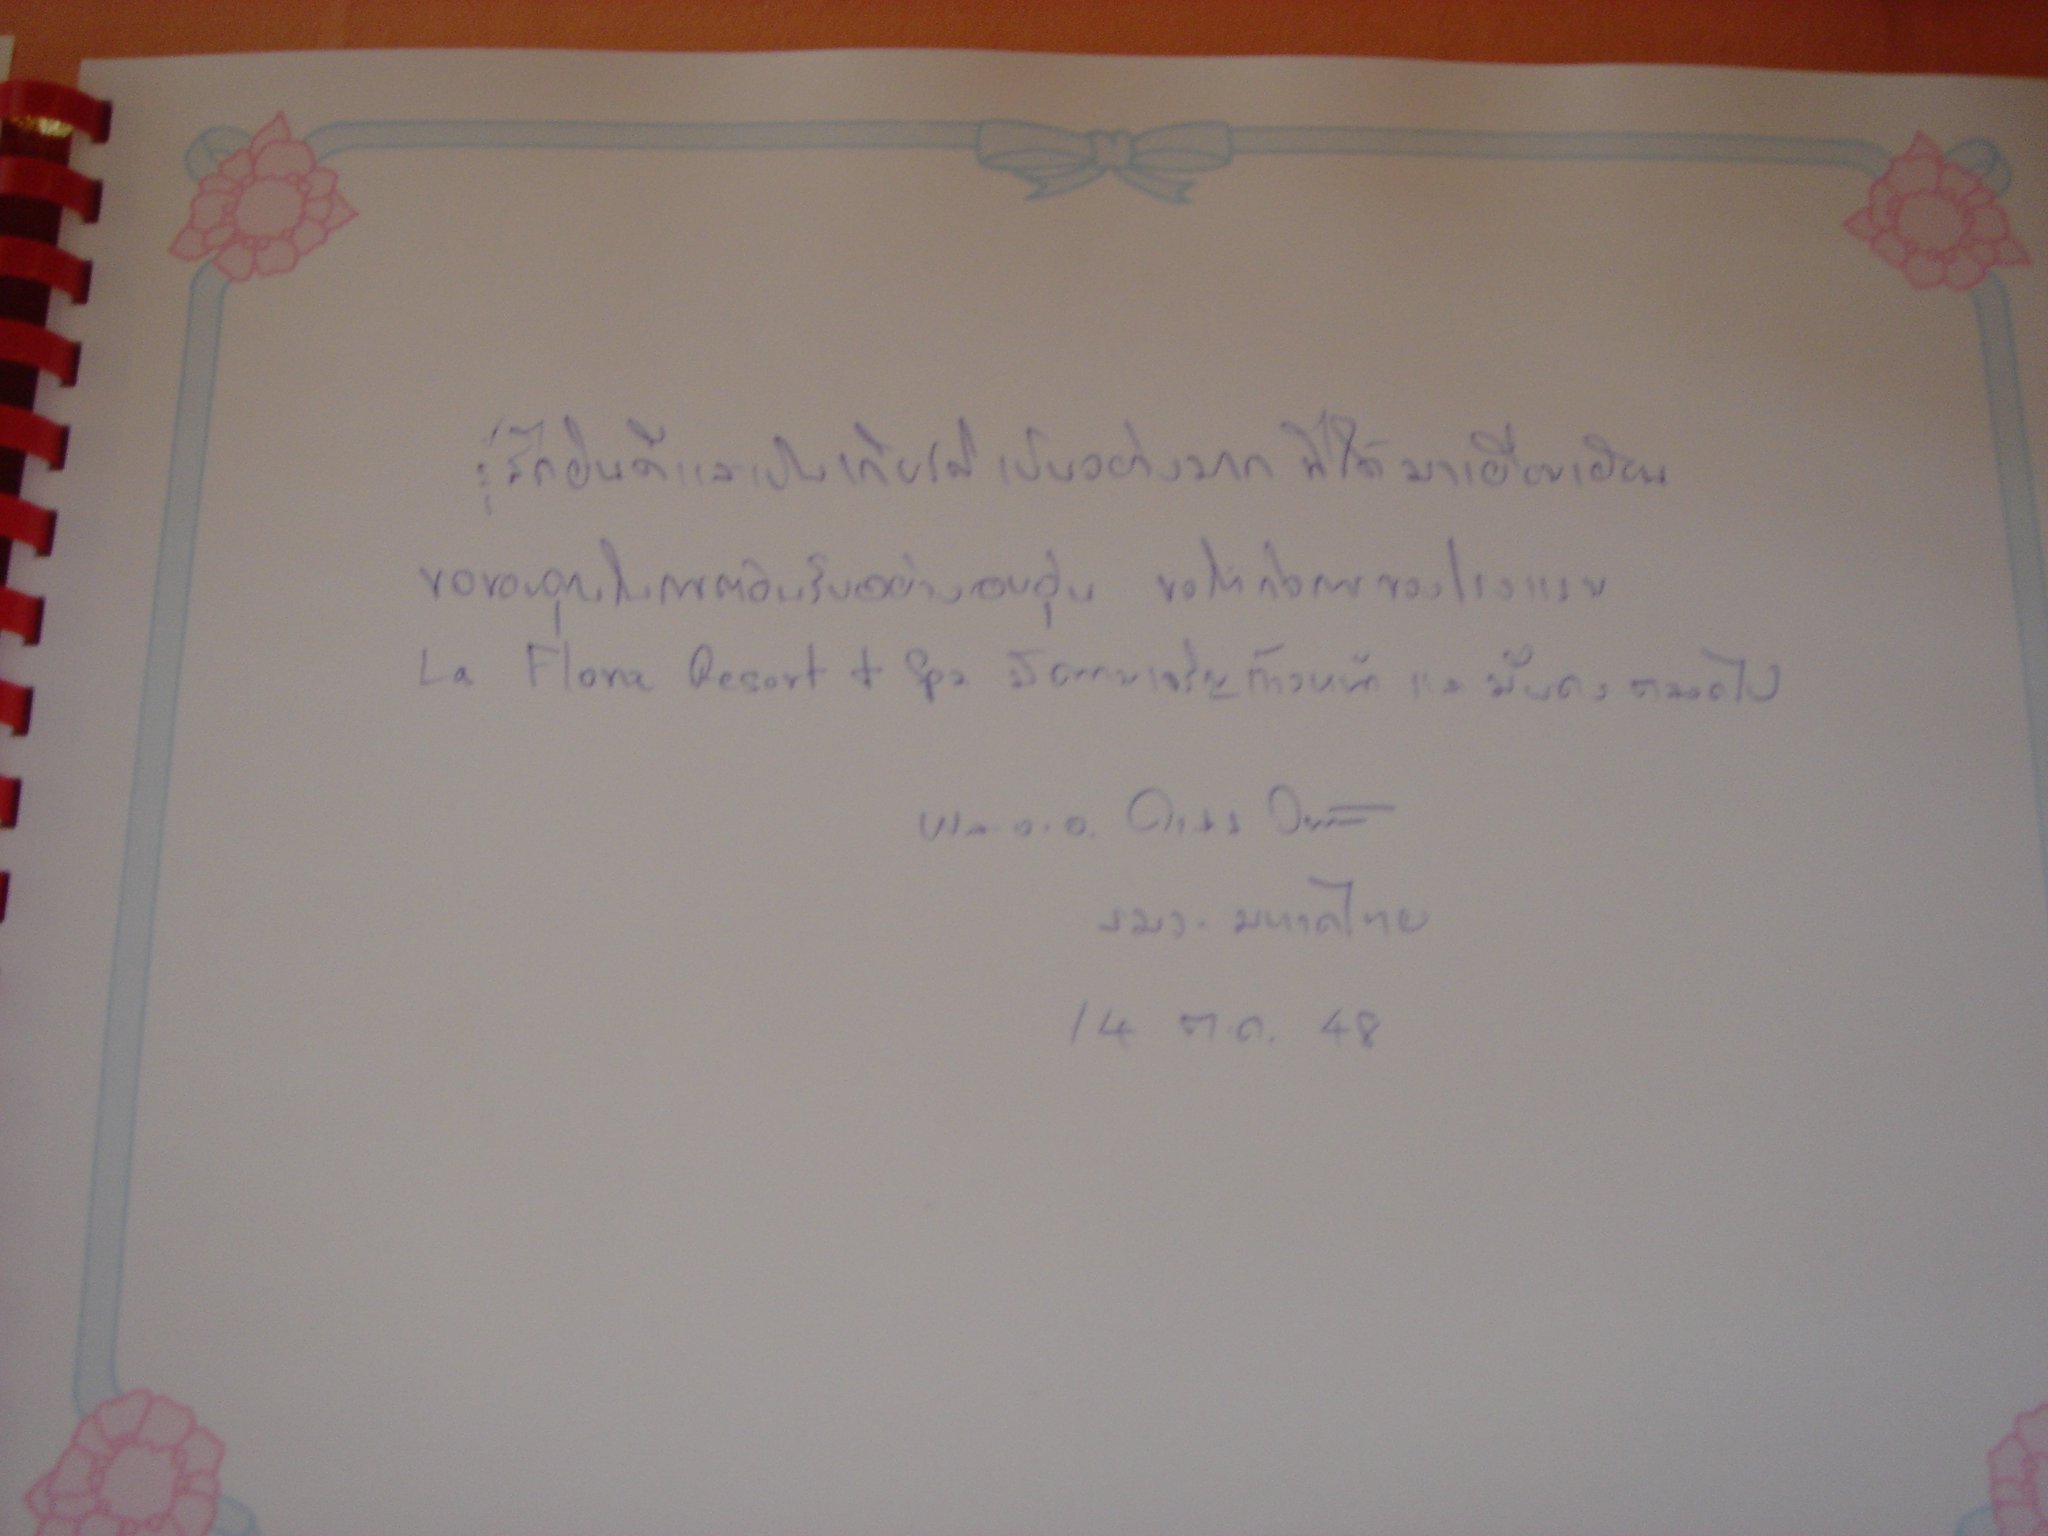 รู้สึกยินดีและเป็นเกียรติเป็นอย่างมาก ที่ได้มาเยี่ยมเยียน
ขอขอบคุณในการต้อนรับอย่างอบอุ่น ขอให้กิจการของโรงแรม
La Flora Resort + Spa มีความเจริญก้าวหน้า และมั่นคง ตลอดไป
พล.อ.อ. คงศักดิ์
รมว. มหาดไทย
14 ต.ค. 48